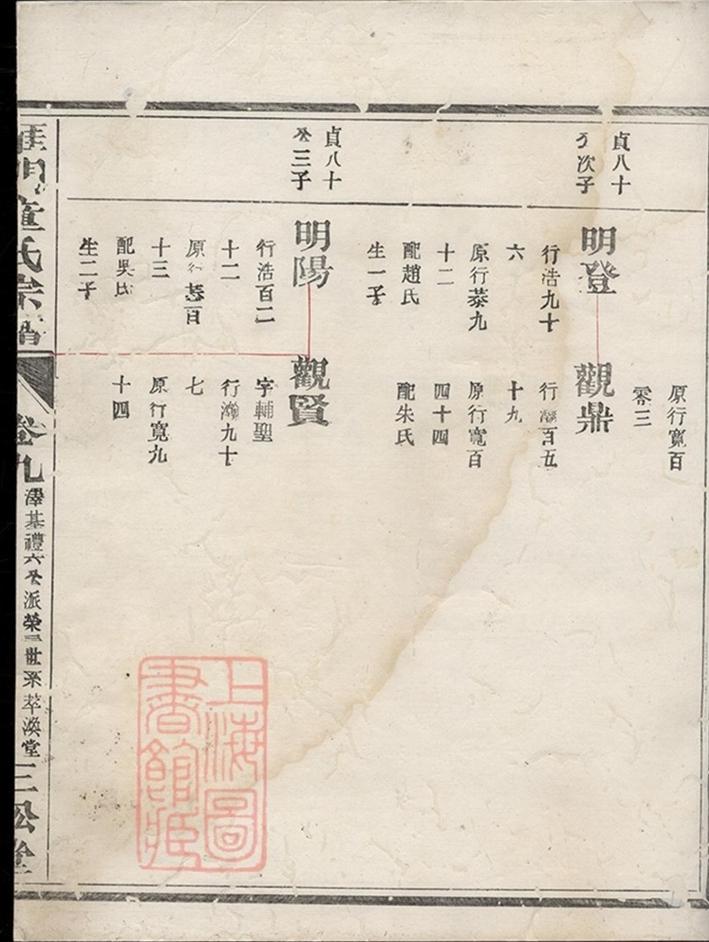 原行寬百
零三
貞八十
公次子
明登
行浩九十
六
原行恭九
十二
配趙氏
生一子
觀鼎
行瀚百五
十九
原行寬百
四十四
配朱氏
貞八十
公三子
明陽
行浩百二
十二
原行恭百
十三
配吳氏
生二子
觀賢
字輔聖
行瀚九十
七
原行寬九
十四
童氏宗譜
卷九
澤基禮六公派榮
世系
萃渙堂
三松堂
上海圖
書館藏